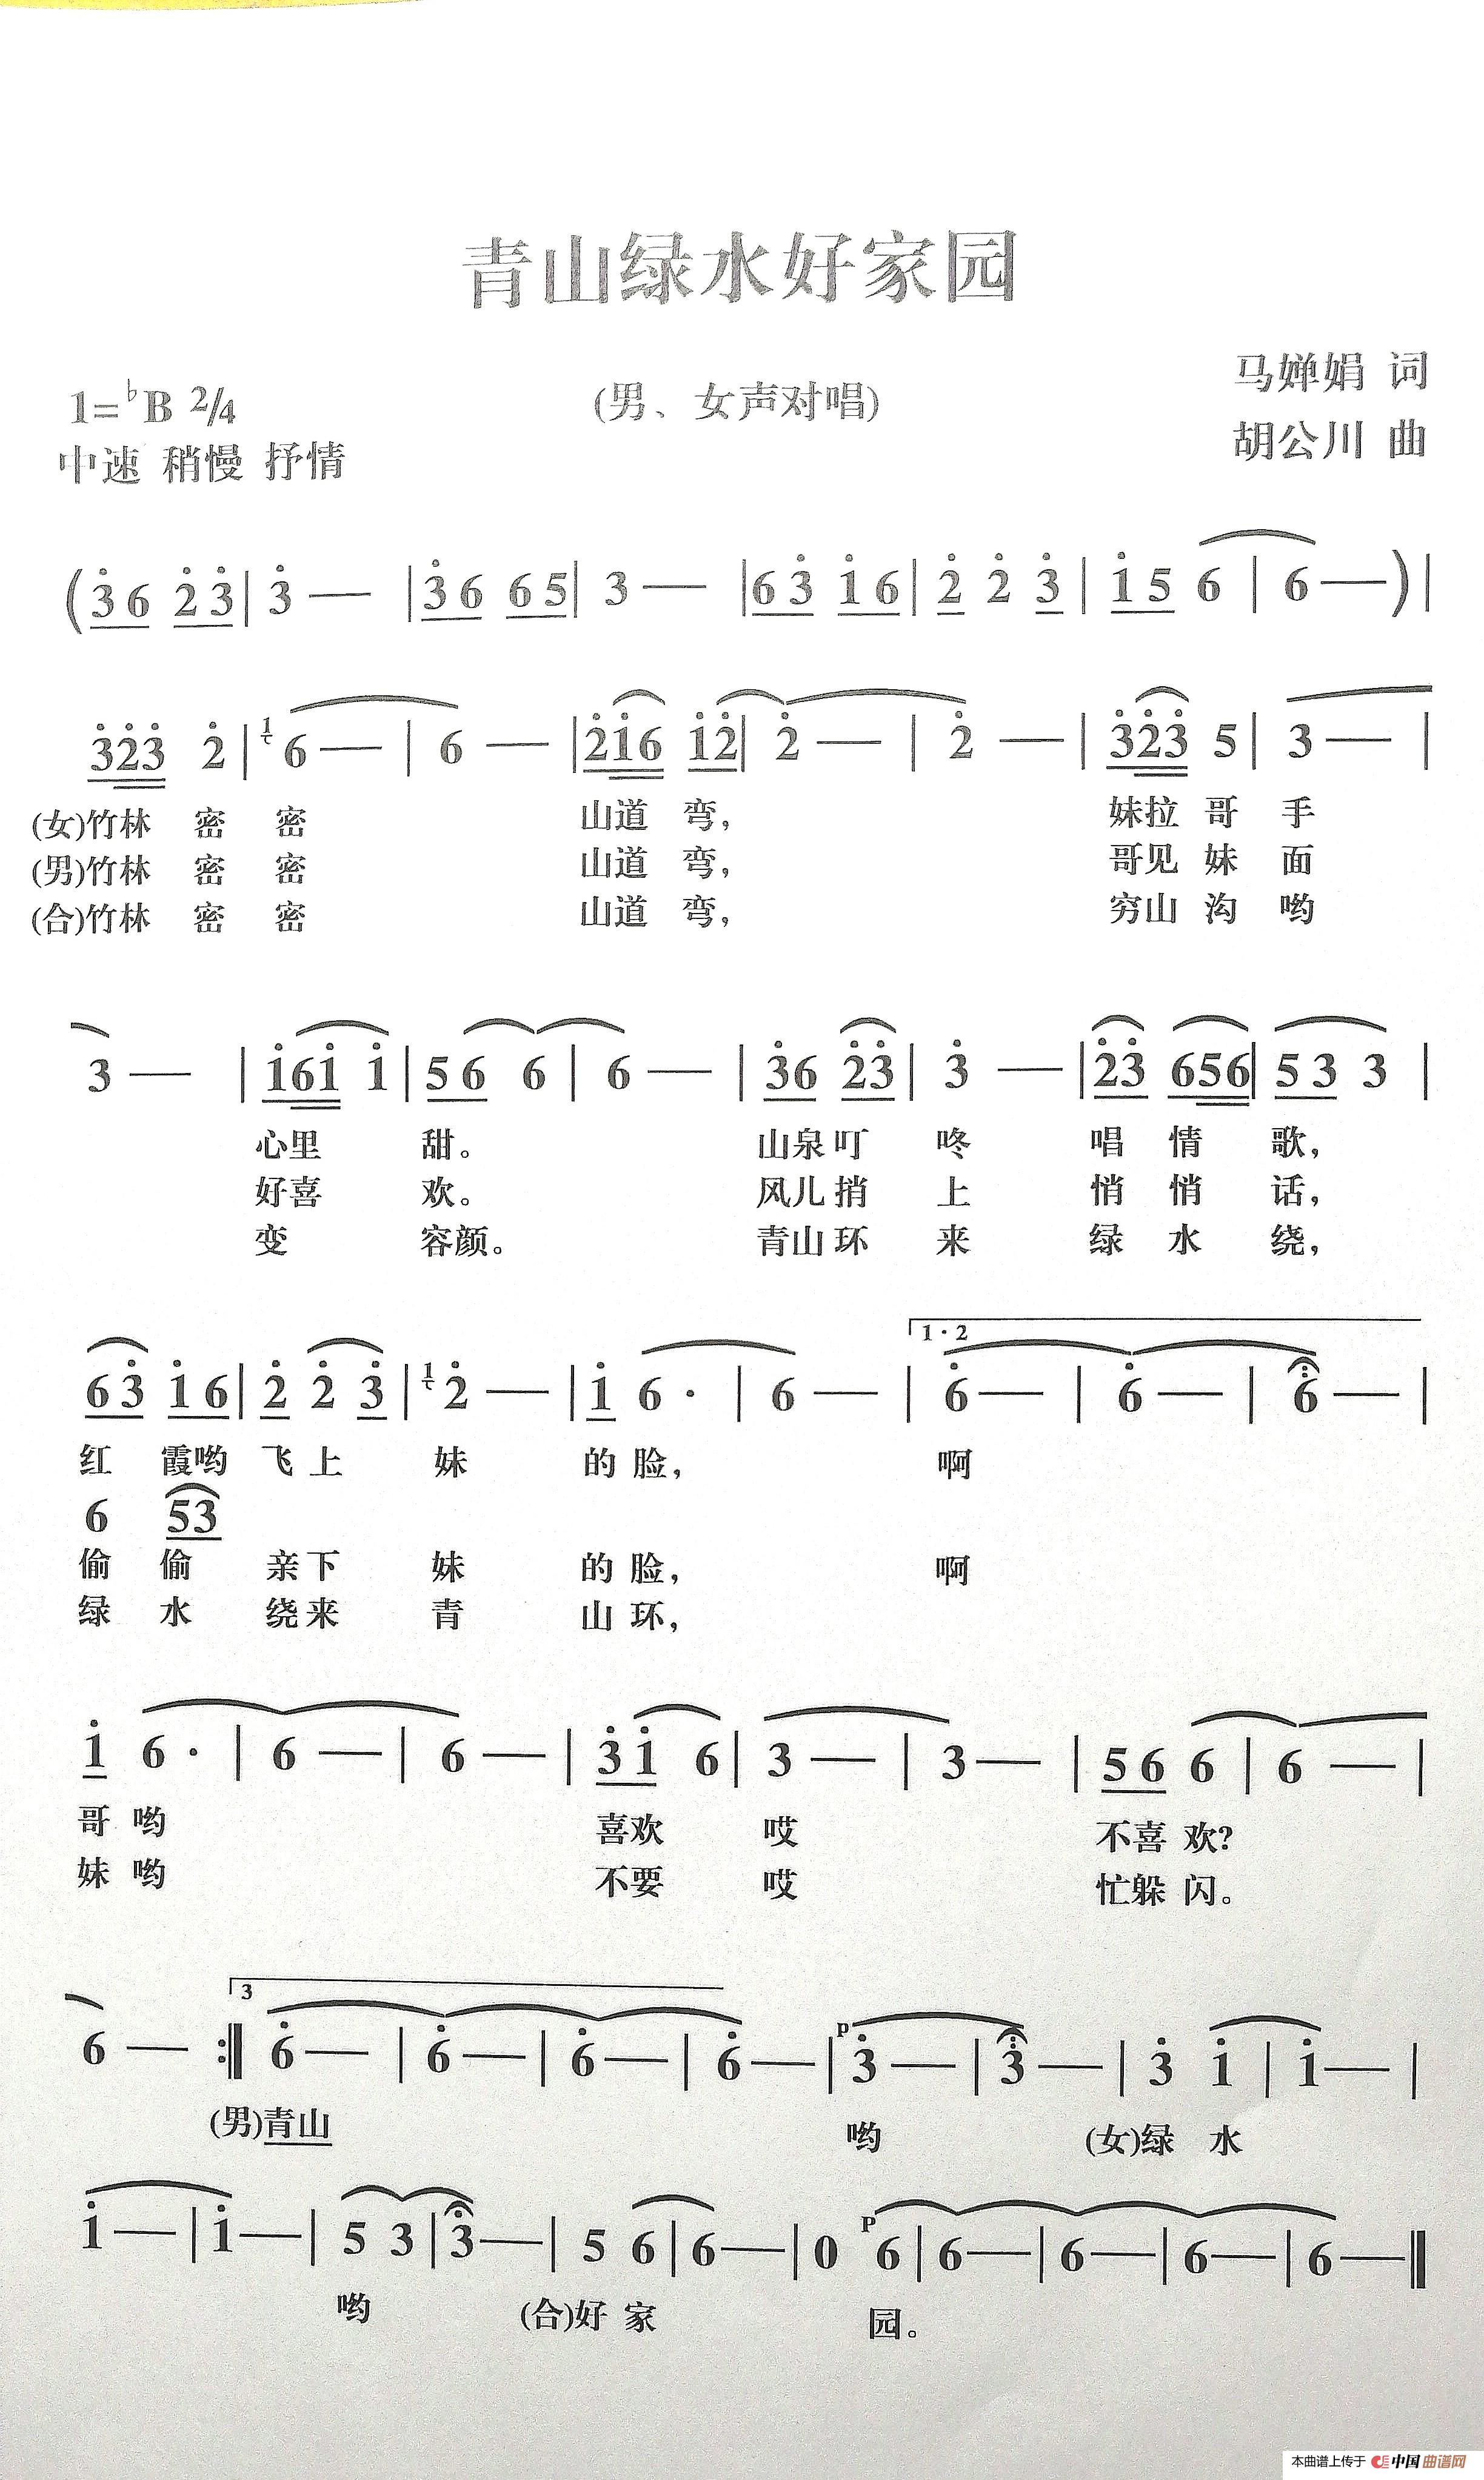 青山绿水好家园
(男、女声对唱)
1=♭B 2/4
中速 稍慢 抒情
马婵娟 词
胡公川 曲
(3̇6 2̇3̇ | 3̇ — | 3̇6 65 | 3 — | 63̇ 1̇6 | 2̇ 2̇ 3̇ | 1̇5 6 | 6 — ) |
3̇2̇3̇ 2̇ | 1̇ 6 — | 6 — | 2̇1̇6 1̇2̇ | 2̇ — | 2̇ — | 3̇2̇3̇ 5 | 3 — |
(女)竹林 密 密 山道 弯, 妹拉 哥 手
(男)竹林 密 密 山道 弯, 哥见 妹 面
(合)竹林 密 密 山道 弯, 穷山 沟 哟
3 — | 1̇61̇ 1̇ | 56 6 | 6 — | 3̇6 2̇3̇ | 3̇ — | 2̇3̇ 656 | 53 3 |
心里 甜。 山泉叮 咚 唱 情 歌,
好喜 欢。 风儿捎 上 悄 悄 话,
变 容颜。 青山环 来 绿 水 绕,
1·2
63̇ 1̇6 | 2̇ 2̇ 3̇ | 1̇ 2̇ — | 1̇ 6· | 6 — | 6̇ — | 6̇ — | 6̇ — |
红 霞哟 飞上 妹 的 脸, 啊
6 53
偷 偷 亲下 妹 的 脸, 啊
绿 水 绕来 青 山 环,
1̇ 6· | 6 — | 6 — | 3̇1̇ 6 | 3 — | 3 — | 56 6 | 6 — |
哥 哟 喜欢 哎 不喜 欢?
妹 哟 不要 哎 忙躲 闪。
3
6 — :‖ 6̇ — | 6̇ — | 6̇ — | 6̇ — | p 3̇ — | 3̇ — | 3̇ 1̇ | 1̇ — |
(男)青山 哟 (女)绿 水
1̇ — | 1̇ — | 5 3 | 3 — | 5 6 | 6 — | 0 p 6 | 6 — | 6 — | 6 — | 6 — ‖
哟 (合)好 家 园。
本曲谱上传于 中国曲谱网